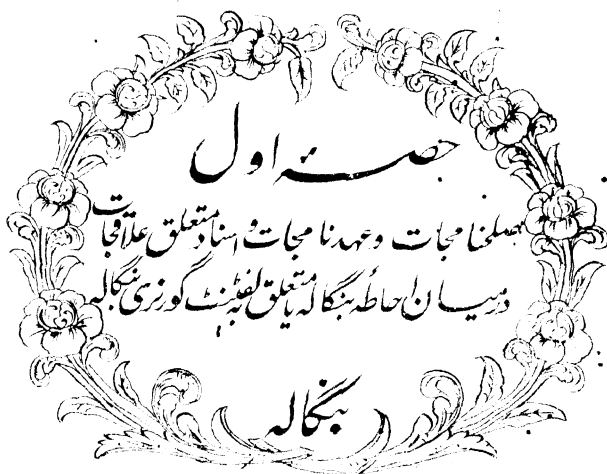 حصہ اول
صلحنامجات و عہدنامجات و اسناد متعلق علاقجات
درمیان احاطۂ بنگالہ یا متعلق بہ لفٹننٹ گورنری بنگالہ
بنگالہ